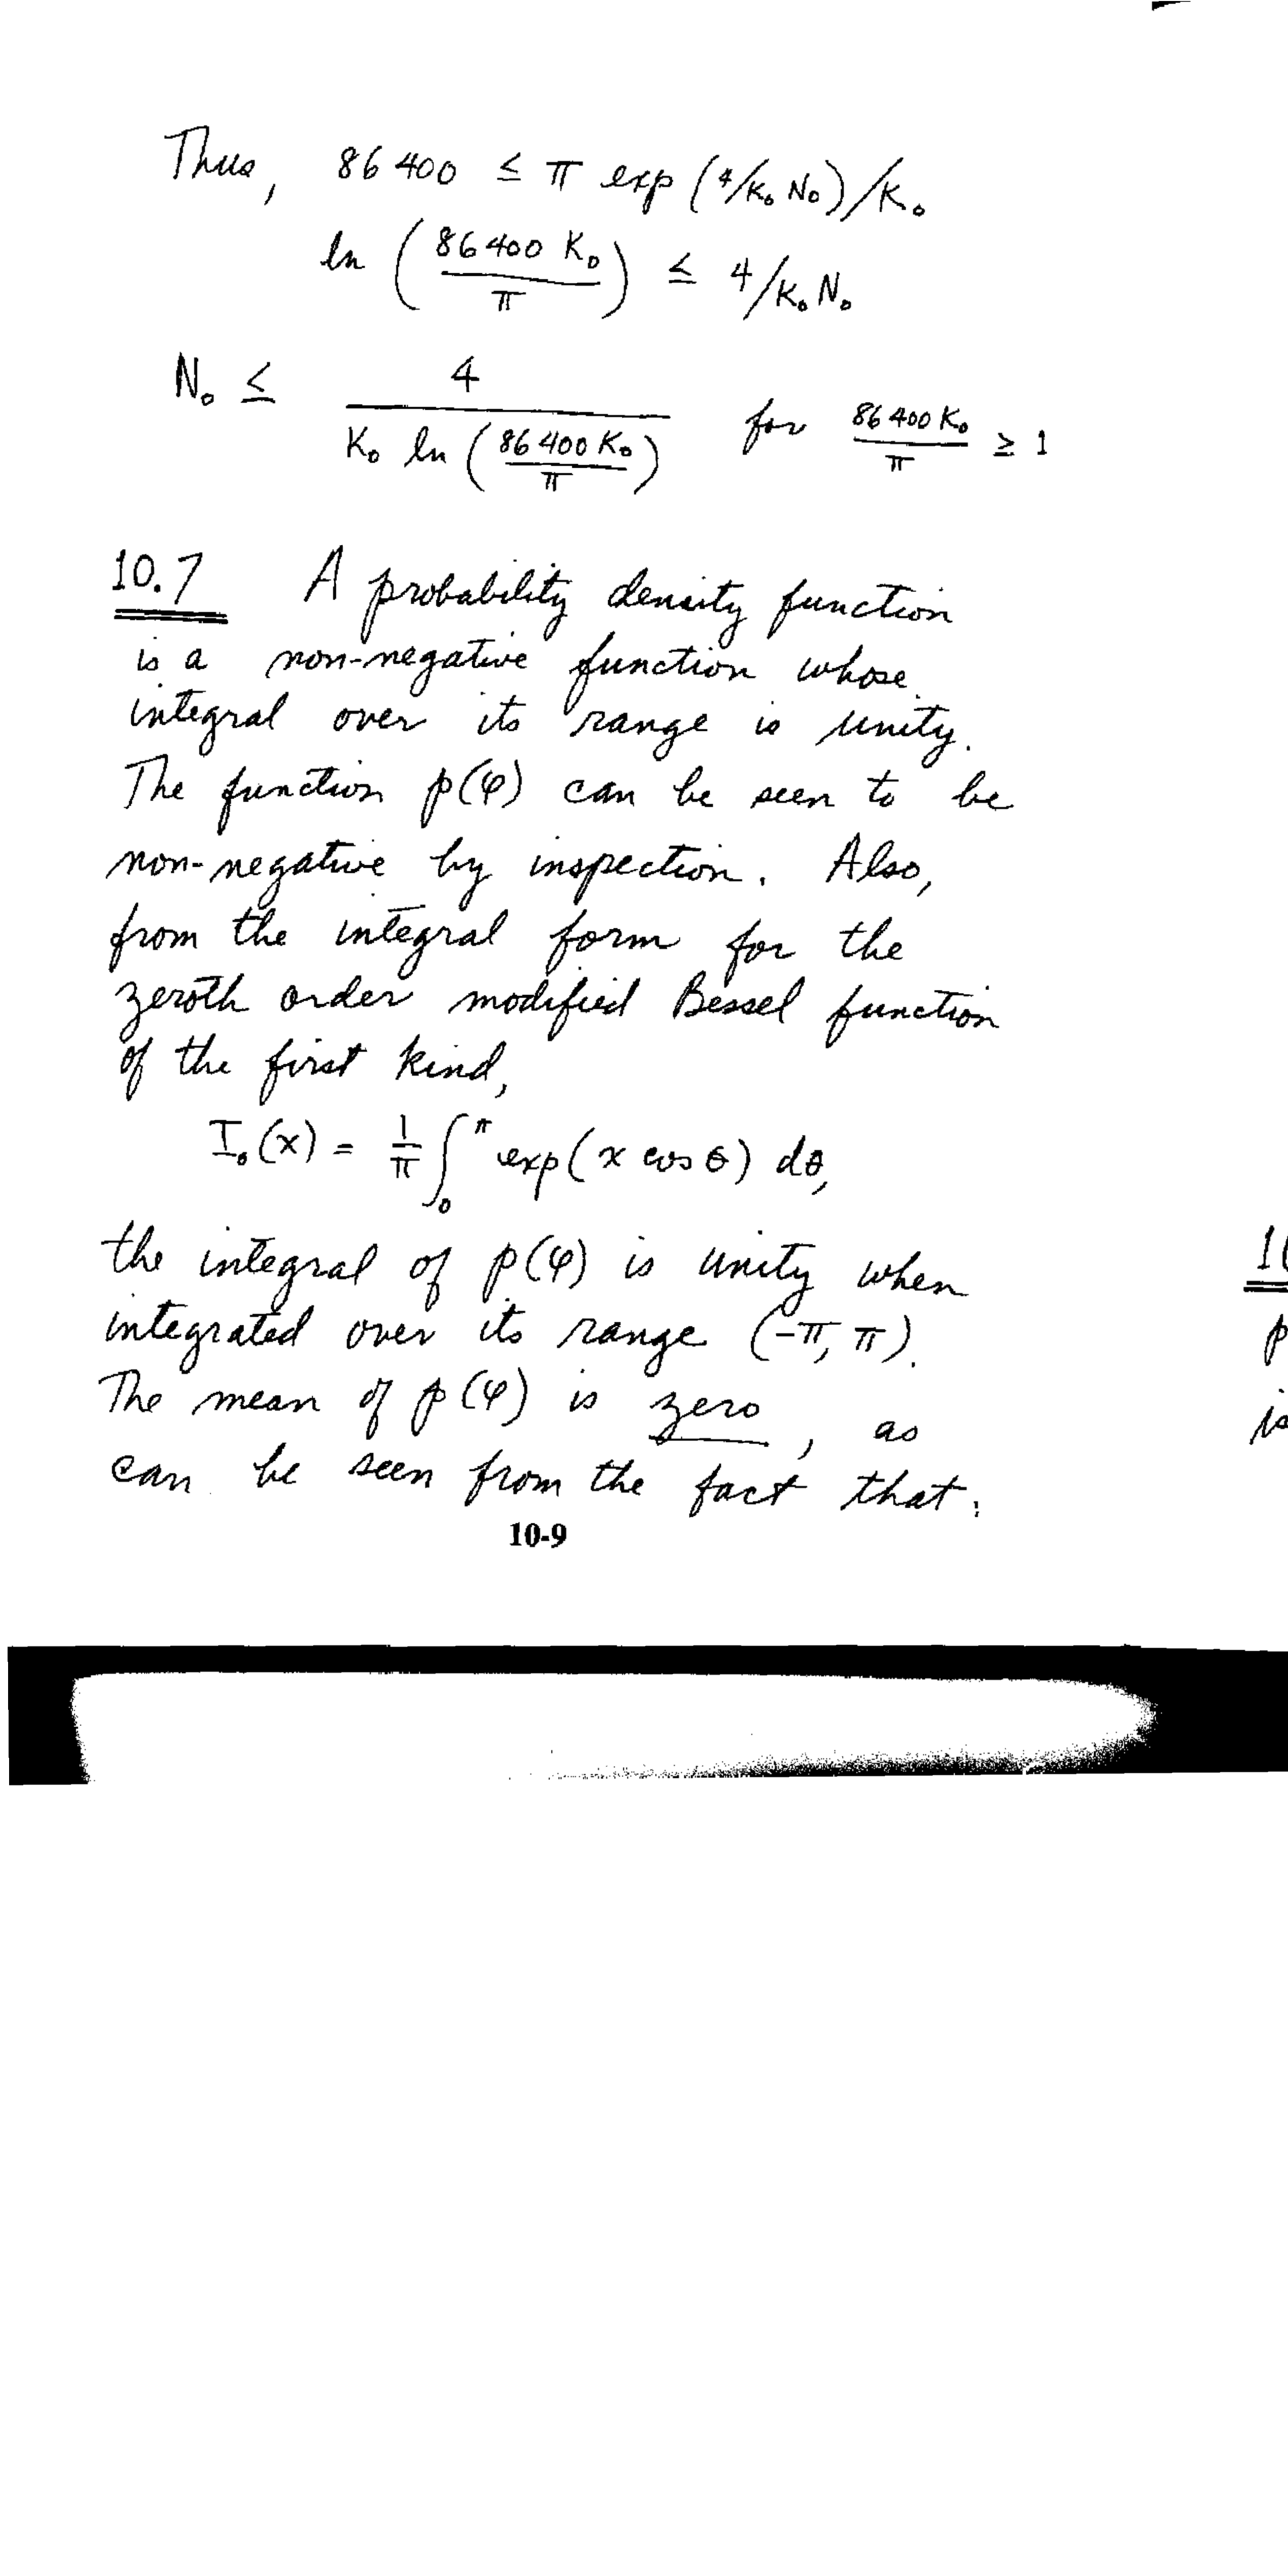 Thus, 86 400 ≤ π exp (4/K₀ N₀)/K₀
ln (86 400 K₀ / π) ≤ 4/K₀ N₀
N₀ ≤ 4 / (K₀ ln (86 400 K₀ / π)) for 86 400 K₀ / π ≥ 1
10.7 A probability density function
is a non-negative function whose
integral over its range is unity.
The function p(φ) can be seen to be
non-negative by inspection. Also,
from the integral form for the
zeroth order modified Bessel function
of the first kind,
I₀(x) = 1/π ∫₀^π exp(x cos θ) dθ,
the integral of p(φ) is unity when
integrated over its range (-π, π).
The mean of p(φ) is zero, as
can be seen from the fact that:
10-9